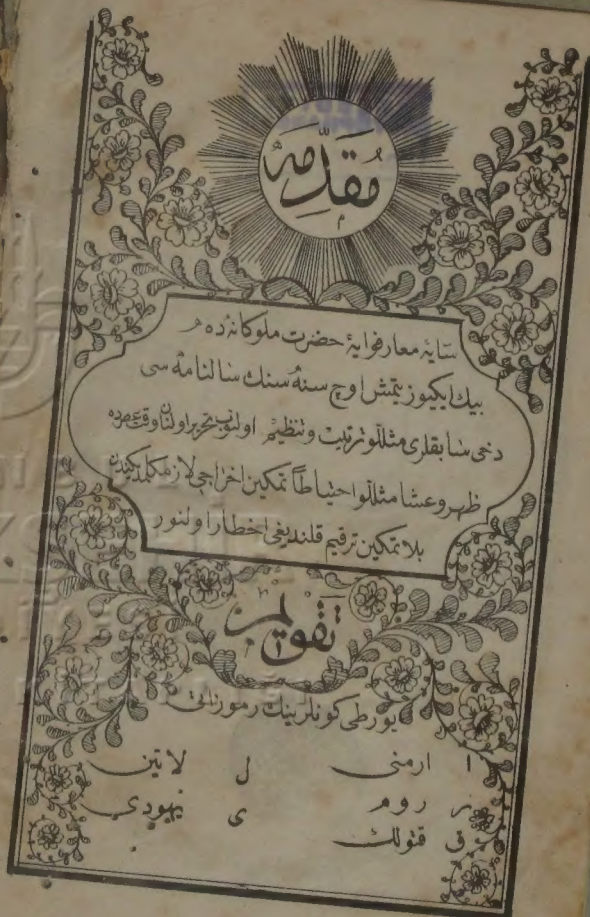 مُقَدِّمَه
سایۀ معارفوایۀ حضرت ملوکانه‌ده
بیك ایكیوز یتمش اوچ سنه‌سنك سالنامه سی
دخی سابقلری مثللو ترتیب وتنظیم اولنوب تحریر اولنان وقت عصرده
ظهر وعشا مثللو احتیاطاً تمكین اخراجی لازمكلمدیكندن
بلا تمكین ترقیم قلندیغی اخطار اولنور
تقویم
یورطی كونلرینك رموزاتی
ا ارمنی ل لاتین
ر روم ی یهودی
ق قتولك